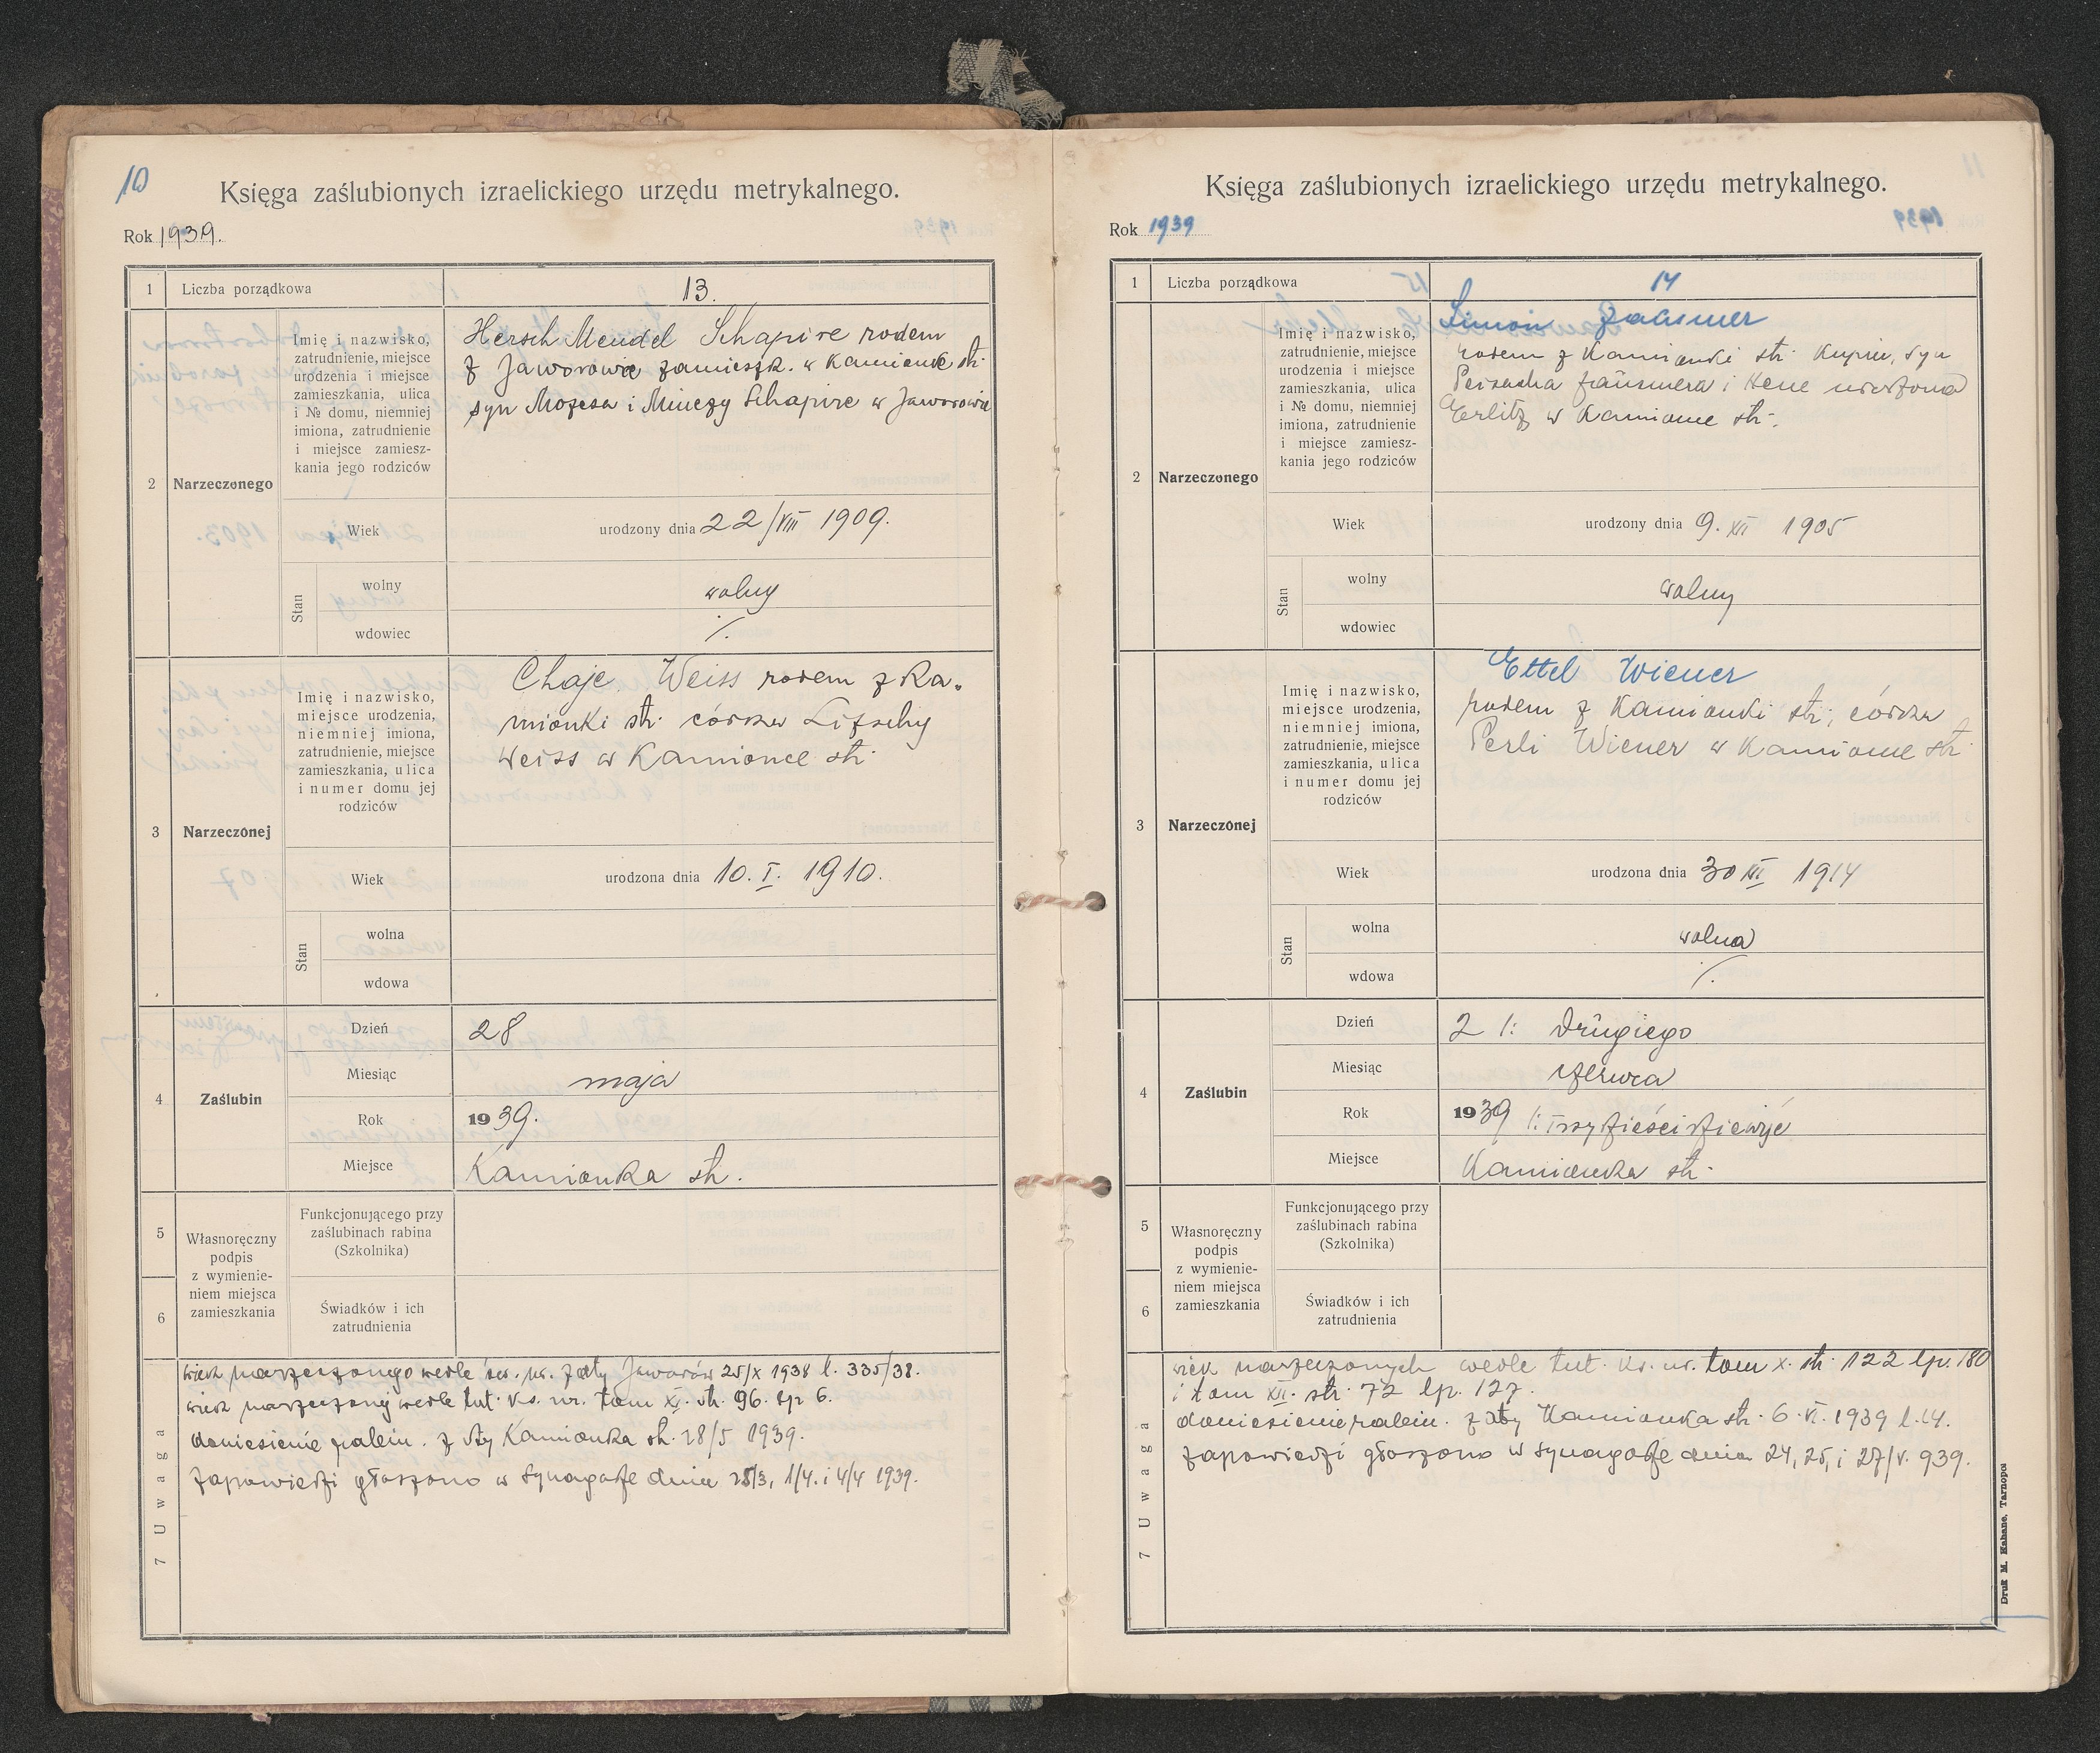 10
Księga zaślubionych izraelickiego urzędu metrykalnego.
Rok 1939.
1 Liczba porządkowa 13.
2 Narzeczonego
Imię i nazwisko,
zatrudnienie, miejsce
urodzenia i miejsce
zamieszkania, ulica
i № domu, niemniej
imiona, zatrudnienie
i miejsce zamiesz-
kania jego rodziców
Hersch Mendel Schapire rodem
z Jaworowie zamieszk. w Kamionce str.
syn Mozesa i Minczy Schapire w Jaworowie
Wiek urodzony dnia 22/VIII 1909.
Stan
wolny wolny
wdowiec /.
3 Narzeczonej
Imię i nazwisko,
miejsce urodzenia,
niemniej imiona,
zatrudnienie, miejsce
zamieszkania, ulica
i numer domu jej
rodziców
Chaje Weiss rodem z Ka-
mionki str. córka Lifschy
Weiss w Kamionce str.
Wiek urodzona dnia 10. I. 1910.
Stan
wolna
wdowa
4 Zaślubin
Dzień 28
Miesiąc maja
Rok 1939.
Miejsce Kamionka str.
5
6
Własnoręczny
podpis
z wymienie-
niem miejsca
zamieszkania
Funkcjonującego przy
zaślubinach rabina
(Szkolnika)
Świadków i ich
zatrudnienia
7 Uwaga
wiek narzeczonego wedle św. ur. z dty Jaworów 25/X 1938 l. 335/38.
wiek narzeczonej wedle tut. ks. ur. tom XI. str. 96. lp 6.
doniesienie rabin. z dty Kamionka str. 28/5 1939.
zapowiedzi głoszono w synagodze dnia 28/3, 1/4. i 4/4 1939.
Księga zaślubionych izraelickiego urzędu metrykalnego.
Rok 1939
1 Liczba porządkowa 14
2 Narzeczonego
Imię i nazwisko,
zatrudnienie, miejsce
urodzenia i miejsce
zamieszkania, ulica
i № domu, niemniej
imiona, zatrudnienie
i miejsce zamiesz-
kania jego rodziców
Simon Zausmer
rodem z Kamionki str. kupiec, syn
Peisacha Zausmera i Hene urodzona
Erlitz w Kamionce str.
Wiek urodzony dnia 9. XII 1905
Stan
wolny wolny
wdowiec
3 Narzeczonej
Imię i nazwisko,
miejsce urodzenia,
niemniej imiona,
zatrudnienie, miejsce
zamieszkania, ulica
i numer domu jej
rodziców
Ettel Wiener
rodem z Kamionki str; córka
Perli Wiener w Kamionce str.
Wiek urodzona dnia 30 1914
Stan
wolna wolna
wdowa /.
4 Zaślubin
Dzień 2 /: drugiego
Miesiąc czerwca
Rok 1939 /: trzydzieści dziewięć
Miejsce Kamionka str.
5
6
Własnoręczny
podpis
z wymienie-
niem miejsca
zamieszkania
Funkcjonującego przy
zaślubinach rabina
(Szkolnika)
Świadków i ich
zatrudnienia
7 Uwaga
wiek narzeczonych wedle tut. ks. ur. tom X. str. 122 lp. 180
i tom XII. str. 72 lp. 127.
doniesienie rabin. z dty Kamionka str. 6. VI. 1939 l. 14.
zapowiedzi głoszono w synagodze dnia 24, 25, i 27/V. 939.
Druk M. Kahane, Tarnopol